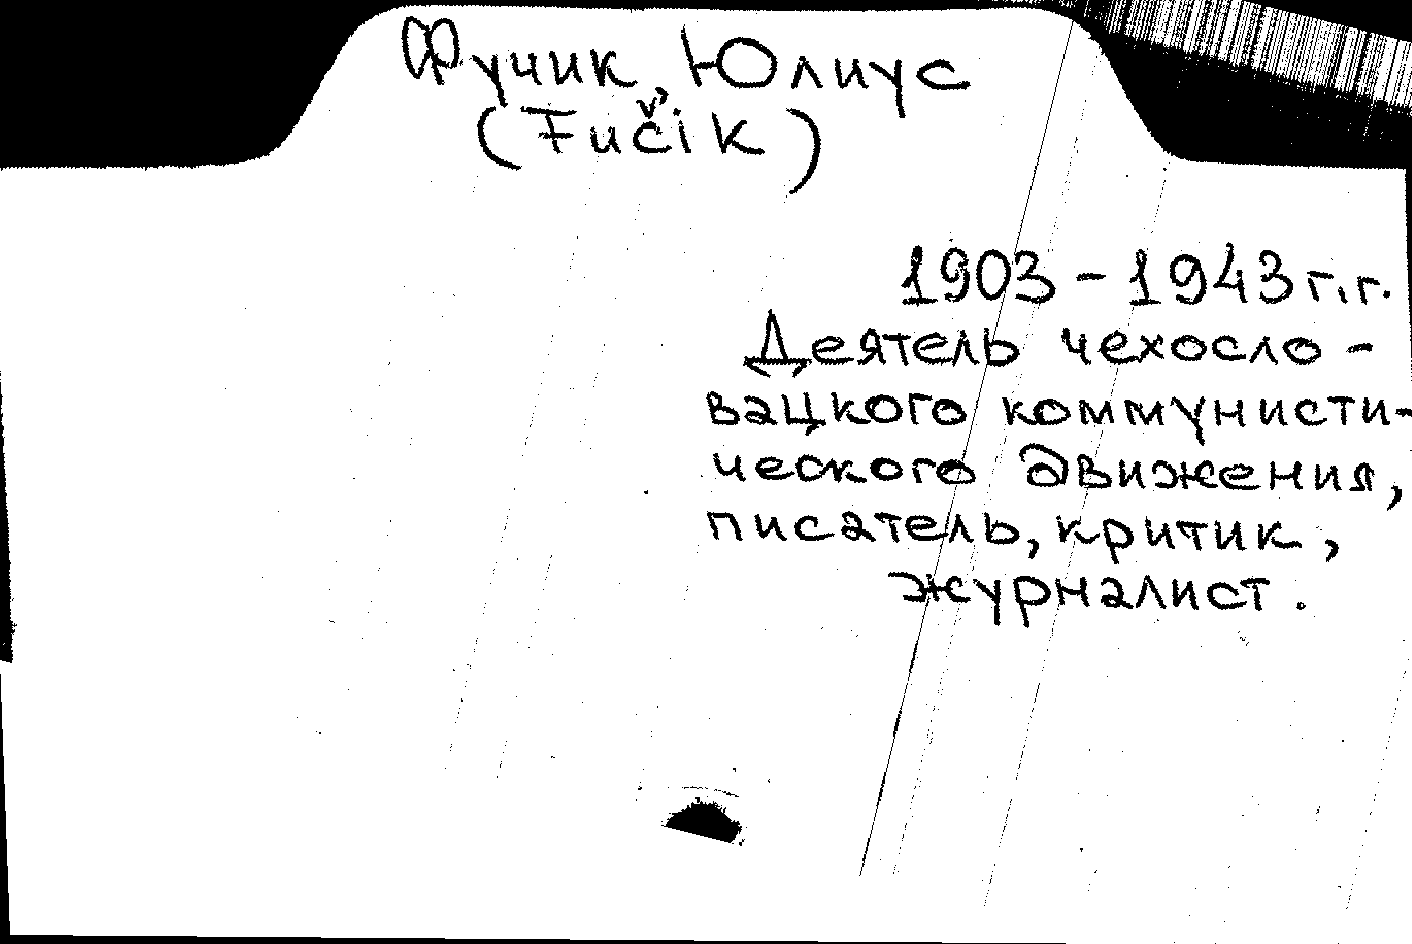 Фучик, Юлиус
(Fučik)
1903-1943г.г.
Деятель чехосло-
вацкого коммунисти-
ческого движения,
писатель, критик,
журналист.